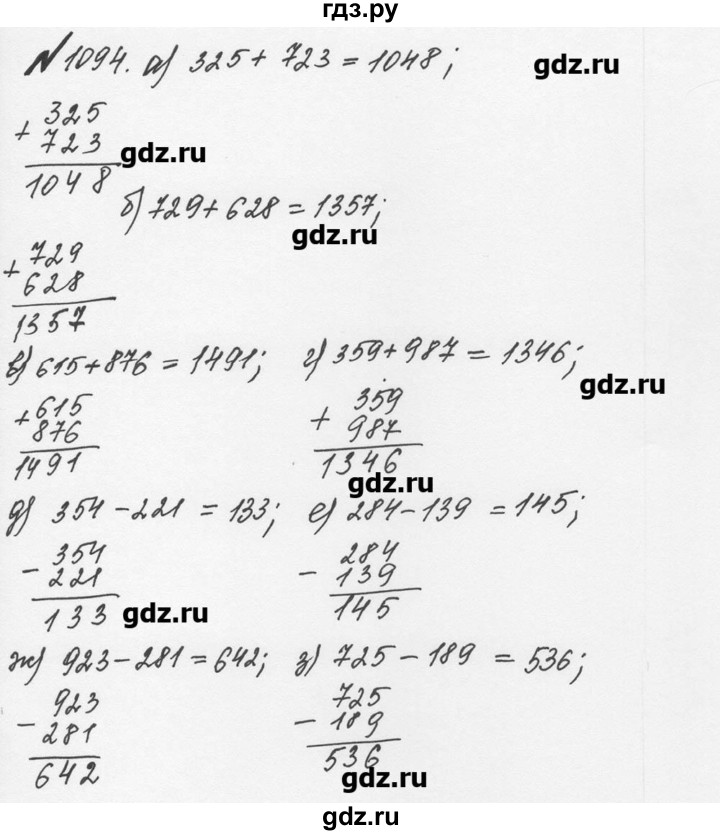 гдз.ру
№1094. а) 325 + 723 = 1048;
gdz.ru
+ 325
723
1048
gdz.ru
б) 729 + 628 = 1357;
gdz.ru
+ 729
628
1357
в) 615 + 876 = 1491; г) 359 + 987 = 1346;
gdz.ru
+ 615
876
1491
+ 359
987
1346
gdz.ru
д) 354 - 221 = 133; е) 284 - 139 = 145;
- 354
221
133
gdz.ru
- 284
139
145
ж) 923 - 281 = 642; з) 725 - 189 = 536;
- 923
281
642
- 725
189
536
gdz.ru
gdz.ru